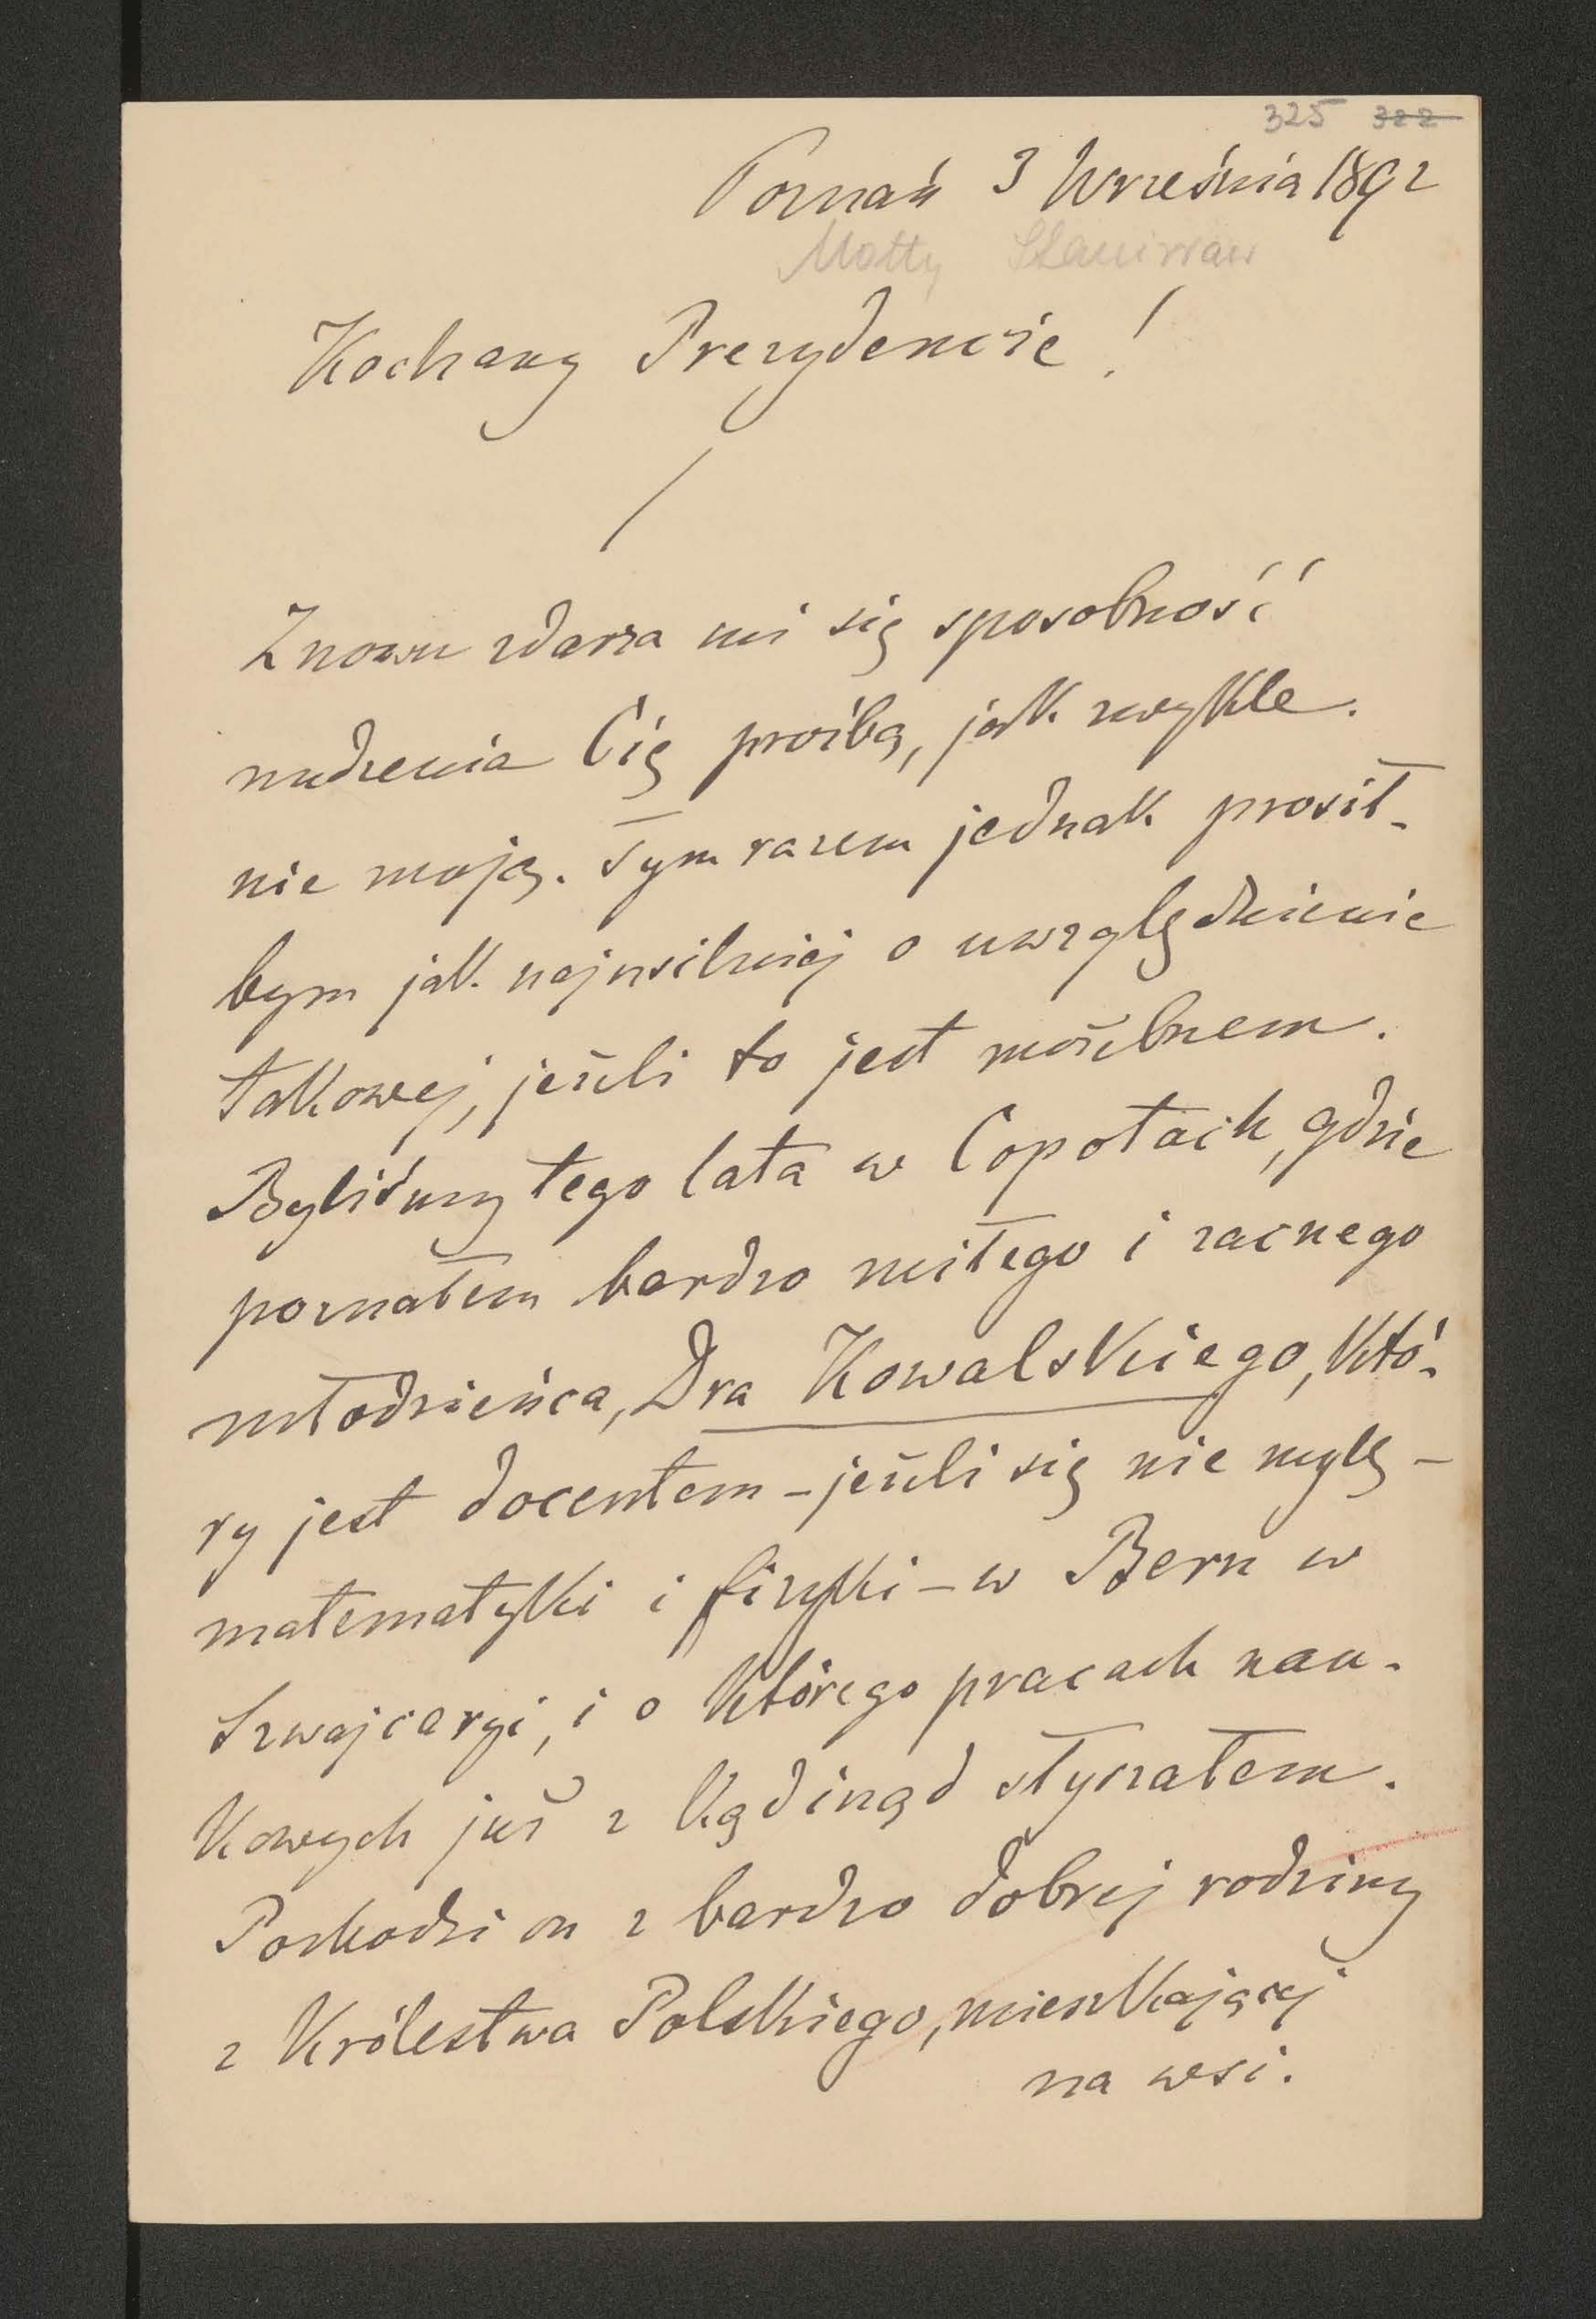 325 322
Poznań 3 Września 1892
Motty Stanisław
Kochany Prezydencie!
Znowu zdarza mi się sposobność
nudzenia Cię prośbą, jak zwykle.
nie moją. Tym razem jednak prosił-
bym jak najusilniej o uwzględnienie
takowej, jeżeli to jest możebnem.
Byliśmy tego lata w Copotach, gdzie
poznałem bardzo miłego i zacnego
młodzieńca, Dra Kowalskiego, któ-
ry jest docentem - jeżeli się nie mylę -
matematyki i fizyki - w Bern w
Szwajcaryi, i o którego pracach nau-
kowych już z kądinąd słyszałem.
Pochodzi on z bardzo dobrej rodziny
z Królestwa Polskiego, mieszkającej
na wsi.